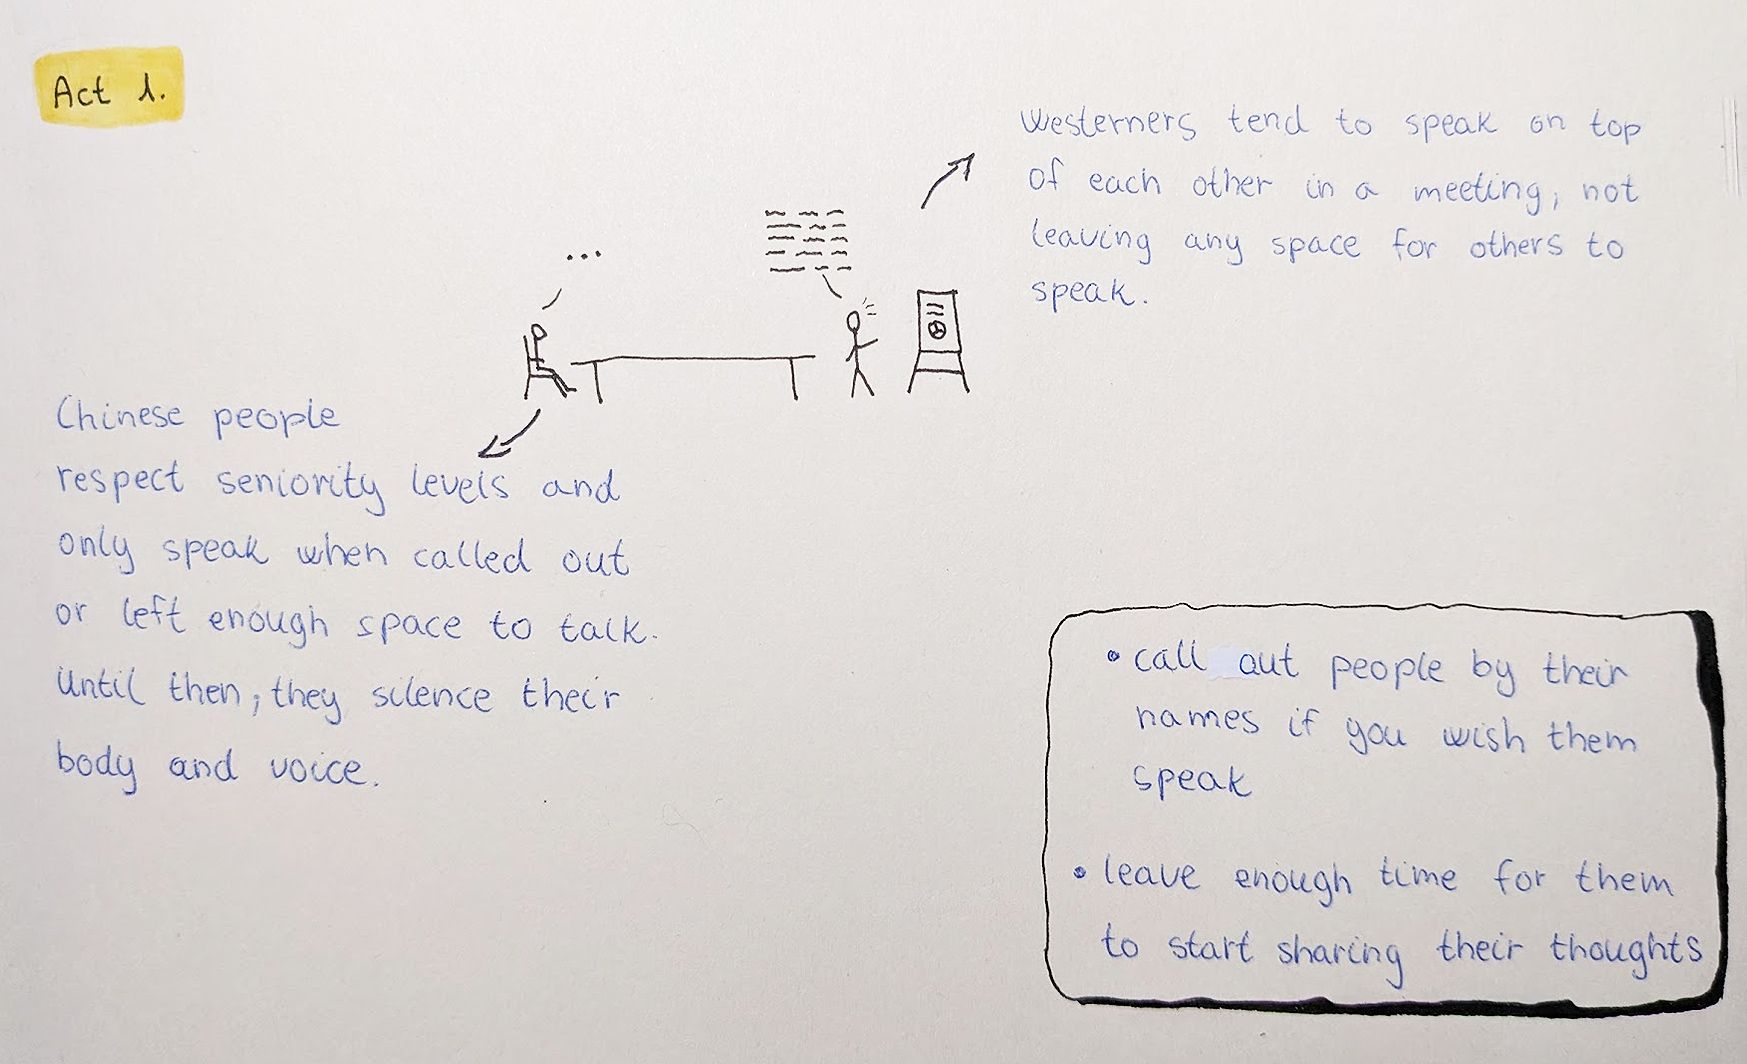 Act 1.
Westerners tend to speak on top
of each other in a meeting, not
leaving any space for others to
speak.
...
Chinese people
respect seniority levels and
only speak when called out
or left enough space to talk.
Until then, they silence their
body and voice.
• call out people by their
names if you wish them
speak
• leave enough time for them
to start sharing their thoughts